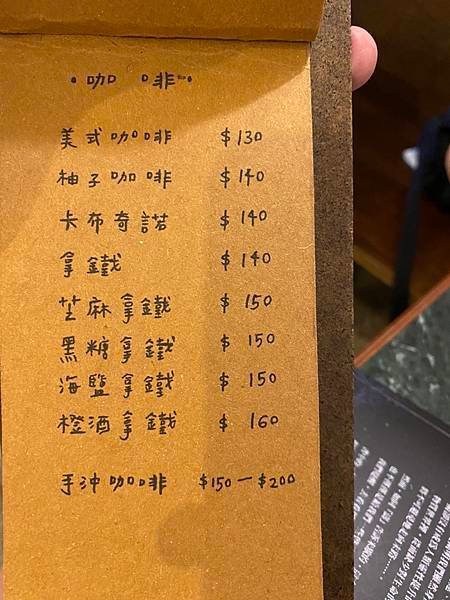 ·咖啡·
美式咖啡 $130
柚子咖啡 $140
卡布奇諾 $140
拿鐵 $140
芝麻拿鐵 $150
黑糖拿鐵 $150
海鹽拿鐵 $150
橙酒拿鐵 $160
手沖咖啡 $150-$200